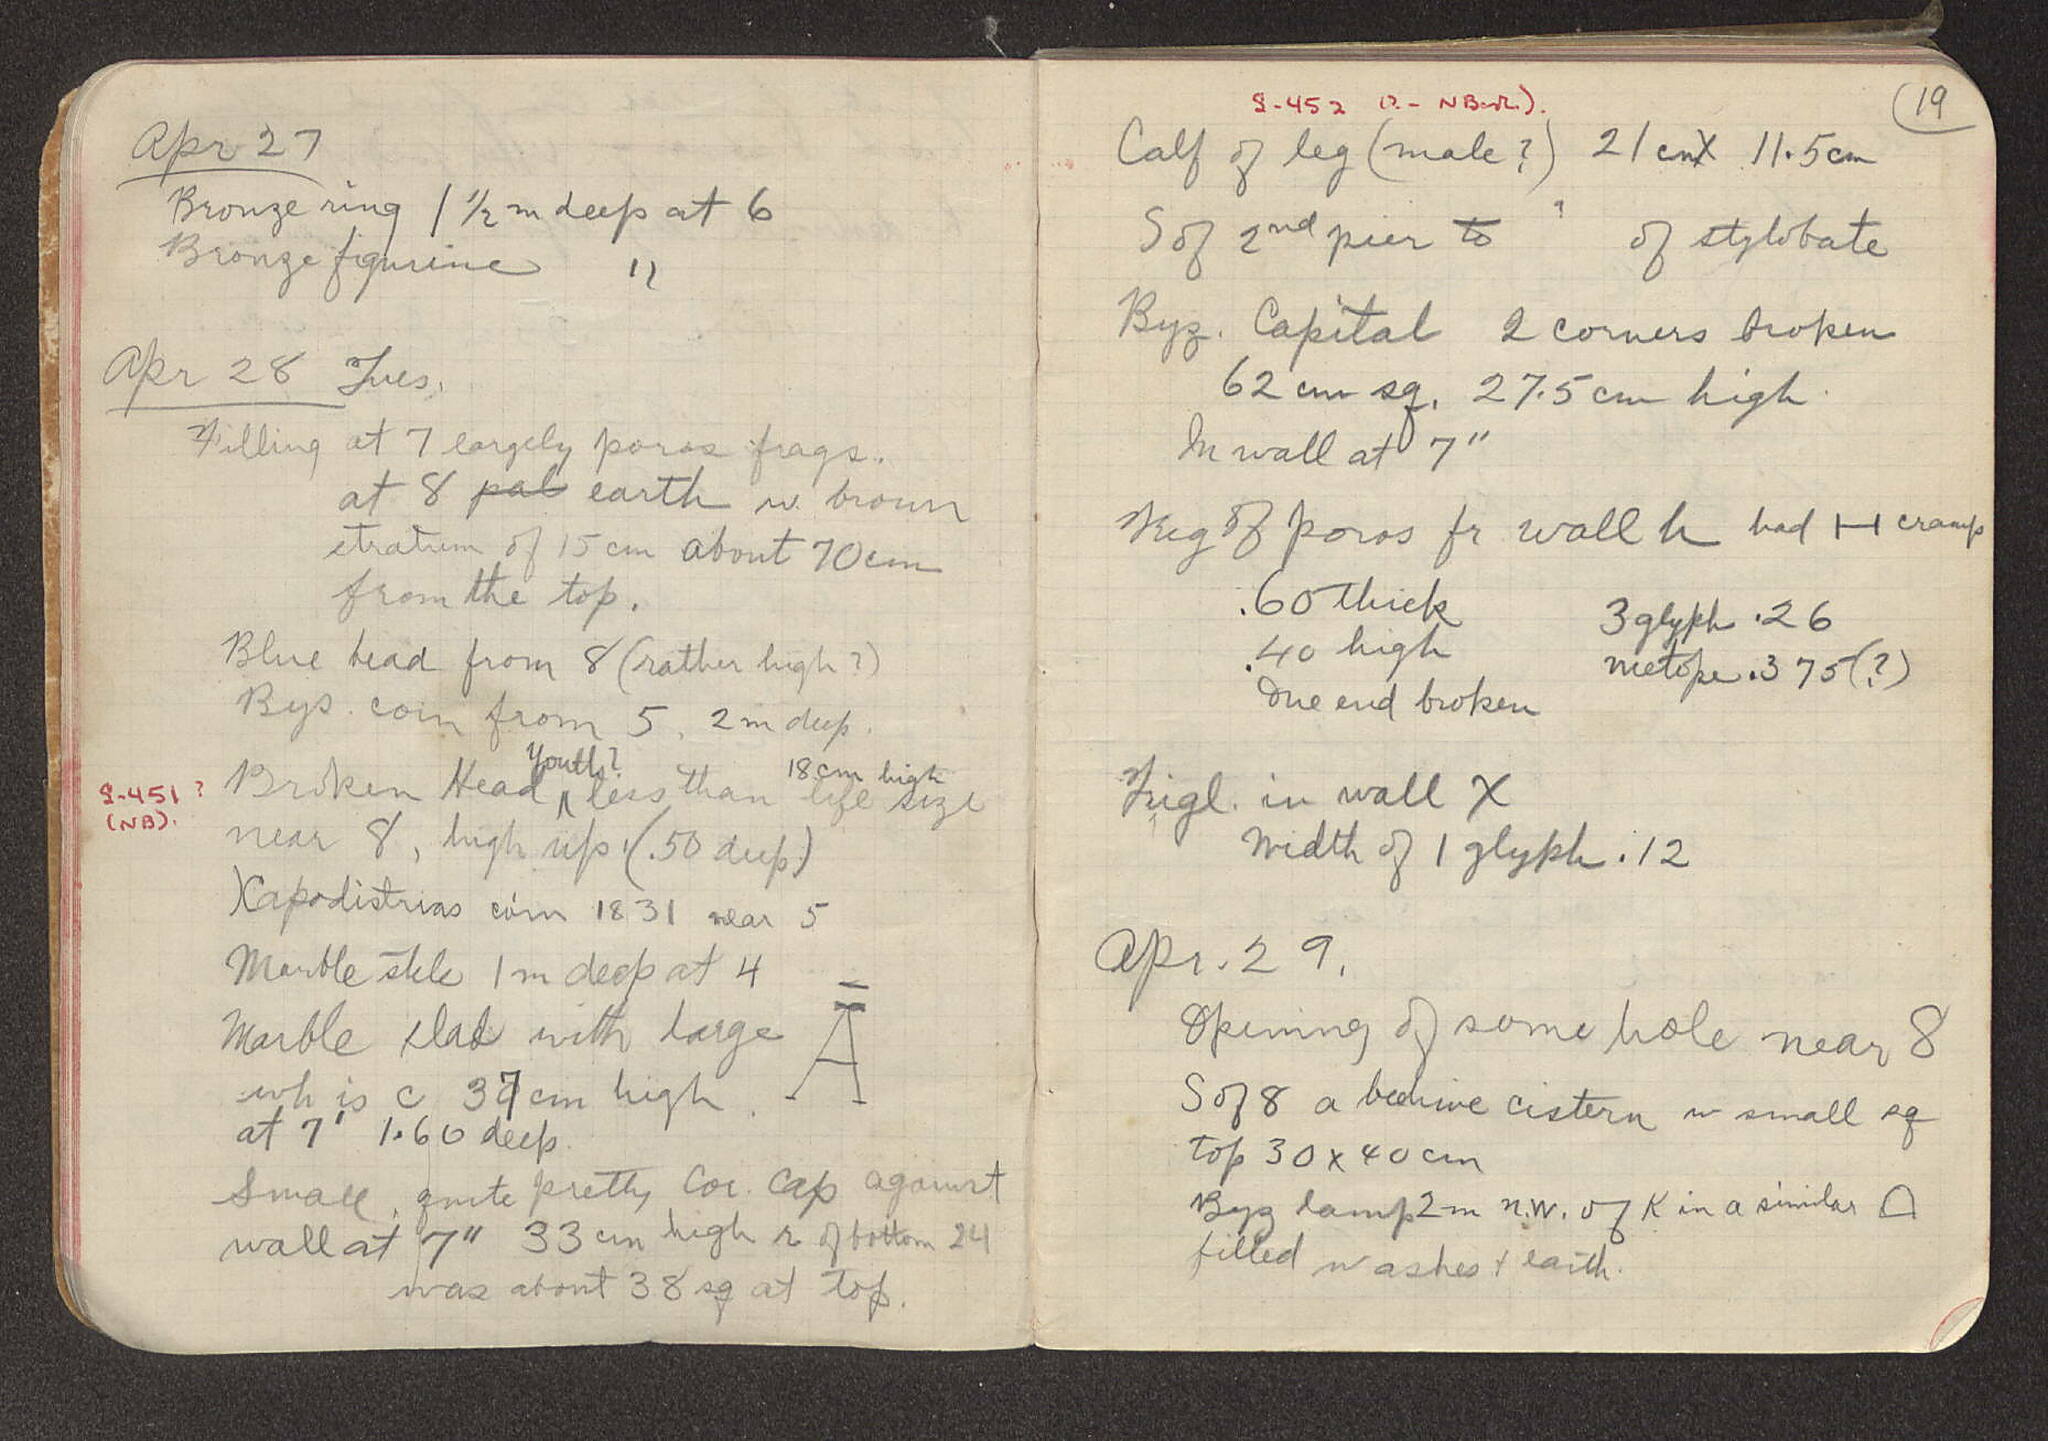 Apr 27
Bronze ring 1 1/2 m deep at 6
Bronze figurine "
Apr 28 Tues.
Filling at 7 largely poros frags.
at 8 pal earth w. brown
stratum of 15 cm about 70 cm
from the top.
Blue bead from 8 (rather high?)
Byz. coin from 5, 2 m deep.
Youth? 18 cm high
S-451 ? Broken Head ∧ less than life size
(NB). near 8, high up. (.50 deep)
Kapodistrias coin 1831 near 5
Marble stele 1 m deep at 4
Marble slab with large Ā
wh is c 37 cm high.
at 7' 1.60 deep.
Small, quite pretty Cor. Cap against
wall at 7" 33 cm high r of bottom 24
was about 38 sq at top.
19
S-452
Calf of leg (male?) 21 cm X 11.5 cm
S of 2nd pier to ? of stylobate
Byz. Capital 2 corners broken
62 cm sq. 27.5 cm high.
In wall at 7"
of poros fr wall h had H cramp
.60 thick 3glyph .26
.40 high metope .375 (?)
One end broken
Trigl. in wall X
Width of 1 glyph .12
Apr. 29.
Opening of some hole near 8
S of 8 a beehive cistern w small sq
top 30 x 40 cm
Byz lamp 2 m N.W. of K in a similar
filled w ashes + earth.